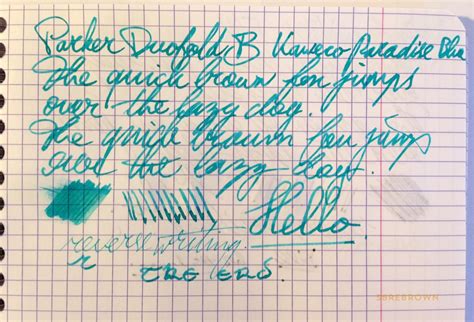 Parker Duofold B Kaweco Paradise Blue
The quick brown fox jumps
over the lazy dog.
The quick brown fox jump
over the lazy dog.
Hello.
reverse writing.
r
THE END.
SBREBROWN